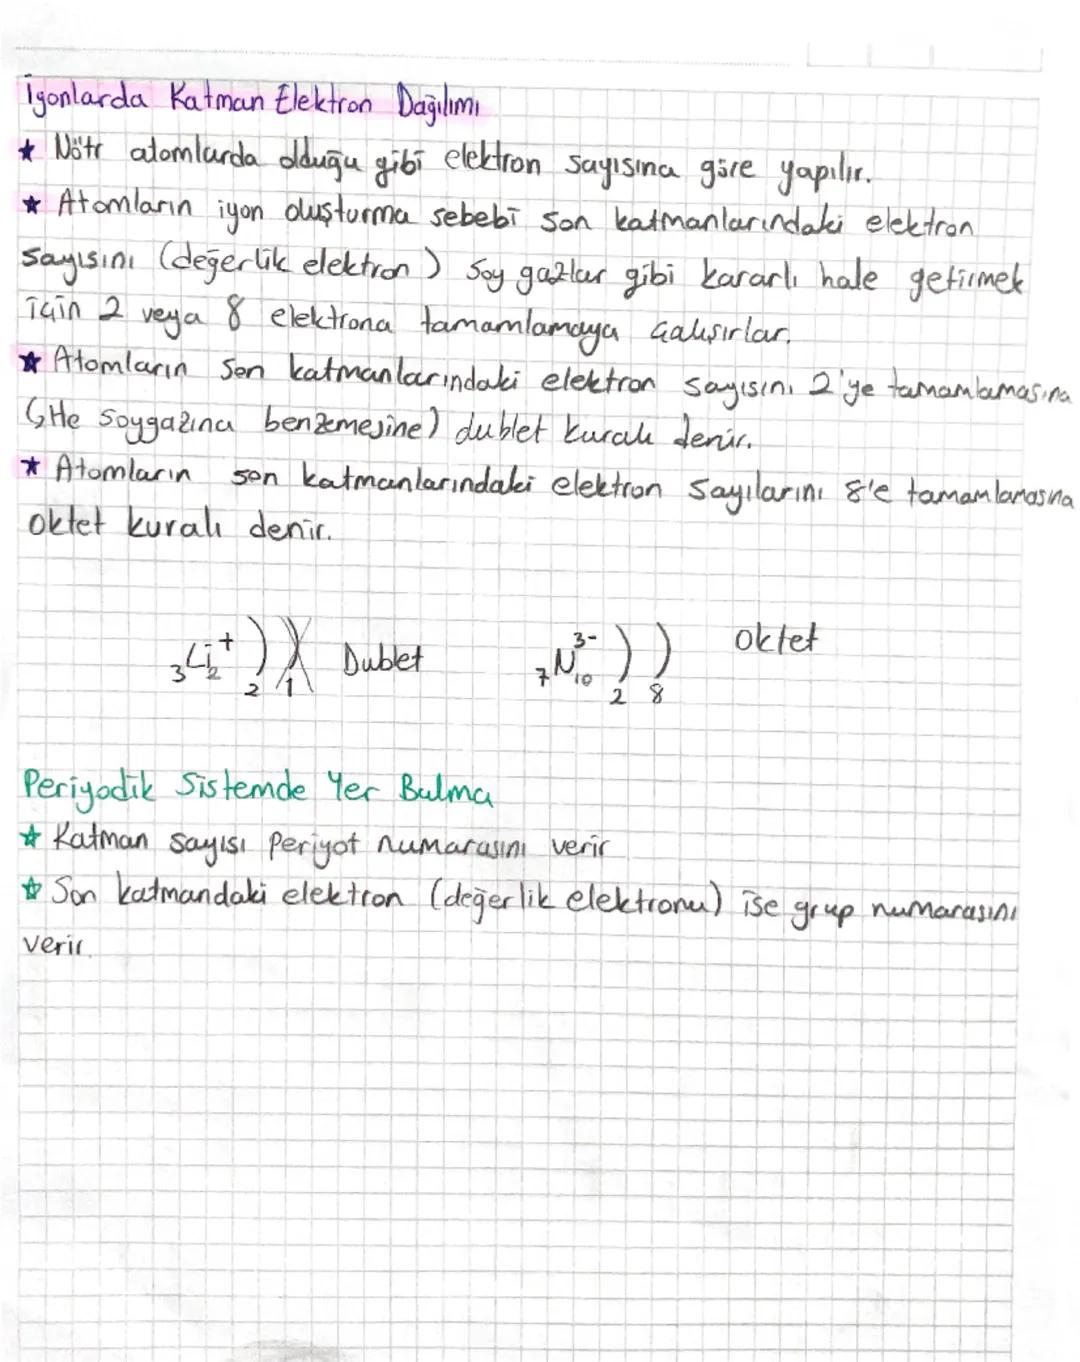 İyonlarda Katman Elektron Dağılımı
★ Nötr atomlarda olduğu gibi elektron sayısına göre yapılır.
★ Atomların iyon oluşturma sebebi son katmanlarındaki elektron
sayısını (değerlik elektron) Soy gazlar gibi kararlı hale getirmek
için 2 veya 8 elektrona tamamlamaya çalışırlar.
★ Atomların son katmanlarındaki elektron sayısını 2'ye tamamlamasına
(He soygazına benzemesine) dublet kuralı denir.
★ Atomların son katmanlarındaki elektron sayılarını 8'e tamamlamasına
oktet kuralı denir.
₃Li₂⁺ ) ) Dublet ₇N₁₀³⁻ ) ) Oktet
2 1 2 8
Periyodik Sistemde Yer Bulma
☆ Katman sayısı periyot numarasını verir
☆ Son katmandaki elektron (değerlik elektronu) ise grup numarasını
verir.